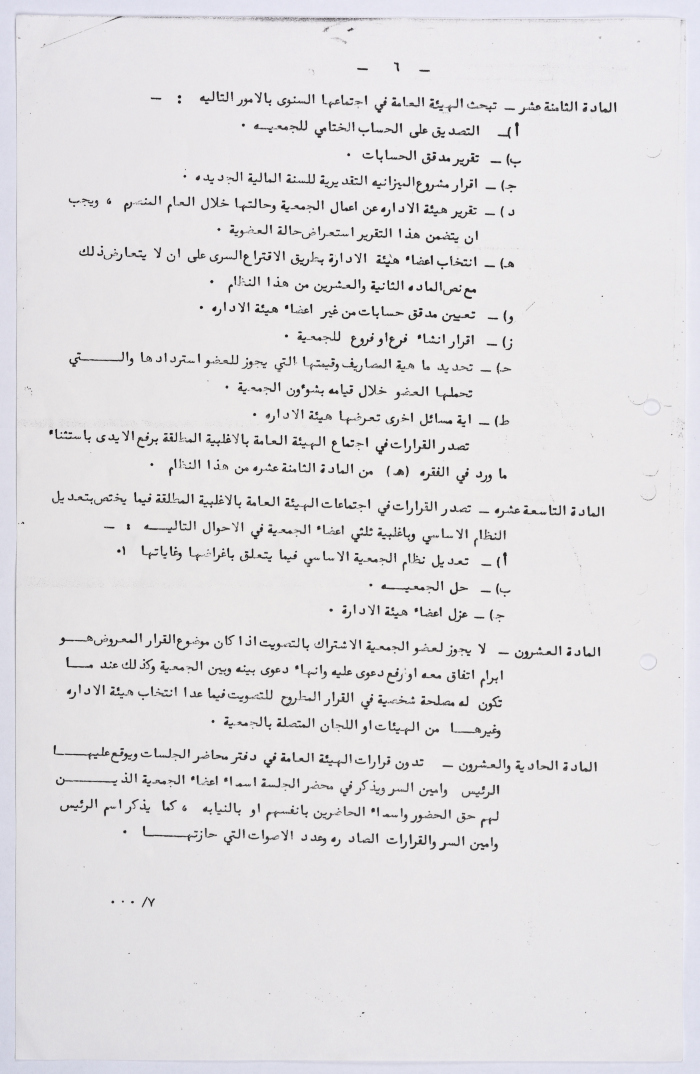 - ٦ -
المادة الثامنة عشر - تبحث الهيئة العامة في اجتماعها السنوى بالامور التاليه : -
أ)- التصديق على الحساب الختامي للجمعيه .
ب)- تقرير مدقق الحسابات .
ج)- اقرار مشروع الميزانيه التقديرية للسنة المالية الجديده .
د)- تقرير هيئة الاداره عن اعمال الجمعية وحالتها خلال العام المنصرم ، ويجب
ان يتضمن هذا التقرير استعراض حالة العضوية .
هـ)- انتخاب اعضاء هيئة الادارة بطريق الاقتراع السرى على ان لا يتعارض ذلك
مع نص الماده الثانية والعشرين من هذا النظام .
و)- تعيين مدقق حسابات من غير اعضاء هيئة الاداره .
ز)- اقرار انشاء فرع او فروع للجمعية .
حـ)- تحديد ما هية المصاريف وقيمتها التي يجوز للعضو استردادها والــــتي
تحملها العضو خلال قيامه بشوءون الجمعية .
ط)- اية مسائل اخرى تعرضها هيئة الاداره .
تصدر القرارات في اجتماع الهيئة العامة بالاغلبية المطلقة برفع الايدى باستثناء
ما ورد في الفقره (هـ) من المادة الثامنة عشره من هذا النظام .
المادة التاسعة عشره - تصدر القرارات في اجتماعات الهيئة العامة بالاغلبية المطلقة فيما يختص بتعديل
النظام الاساسي وباغلبية ثلثي اعضاء الجمعية في الاحوال التاليــه : -
أ)- تعديل نظام الجمعية الاساسي فيما يتعلق باغراضها وغاياتها .
ب)- حل الجمعيــه .
ج)- عزل اعضاء هيئة الادارة .
المادة العشرون - لا يجوز لعضو الجمعية الاشتراك بالتصويت اذا كان موضوع القرار المعروض هــو
ابرام اتفاق معه او رفع دعوى عليه وانهاء دعوى بينه وبين الجمعية وكذلك عند مــا
تكون له مصلحة شخصية في القرار المطروح للتصويت فيما عدا انتخاب هيئة الاداره
وغيرهــا من الهيئات او اللجان المتصلة بالجمعية .
المادة الحادية والعشرون - تدون قرارات الهيئة العامة في دفتر محاضر الجلسات ويوقع عليهــا
الرئيس وامين السر ويذكر في محضر الجلسة اسماء اعضاء الجمعية الذيــن
لهم حق الحضور واسماء الحاضرين بانفسهم او بالنيابه ، كما يذكر اسم الرئيس
وامين السر والقرارات الصادره وعدد الاصوات التي حازتهــا .
٧/ ...